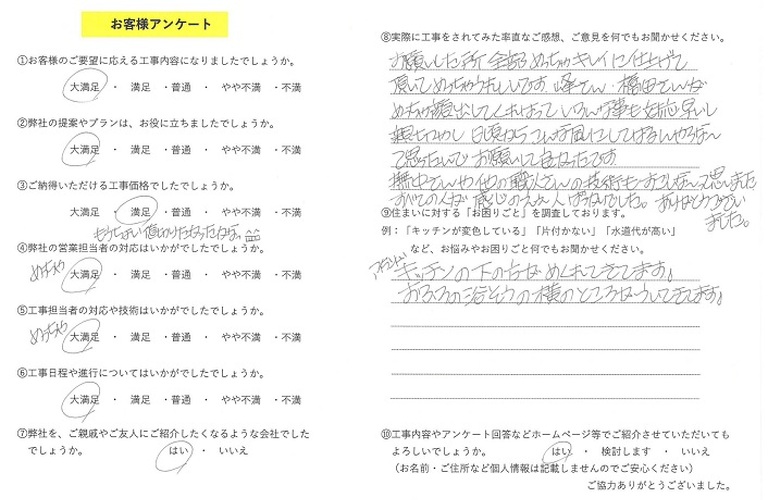 お客様アンケート
①お客様のご要望に応える工事内容になりましたでしょうか。
大満足 ・ 満足 ・普通 ・ やや不満 ・不満
②弊社の提案やプランは、お役に立ちましたでしょうか。
大満足 ・ 満足 ・普通 ・ やや不満 ・不満
③ご納得いただける工事価格でしたでしょうか。
大満足 ・ 満足 ・普通 ・ やや不満 ・不満
④弊社の営業担当者の対応はいかがでしたでしょうか。
めっちゃ 大満足 ・ 満足 ・普通 ・ やや不満 ・不満
⑤工事担当者の対応や技術はいかがでしたでしょうか。
めっちゃ 大満足 ・ 満足 ・普通 ・ やや不満 ・不満
⑥工事日程や進行についてはいかがでしたでしょうか。
大満足 ・ 満足 ・普通 ・ やや不満 ・不満
⑦弊社を、ご親戚やご友人にご紹介したくなるような会社でした
でしょうか。 はい ・ いいえ
⑧実際に工事をされてみた率直なご感想、ご意見を何でもお聞かせください。
お願いした所全部めっちゃキレイに仕上げて
頂いてめっちゃうれしいです。峰さん・福田さんが
めっちゃ顔出してくれはって いろんな事も対応早いし
日頃から
て思ったんで お願いして良かったです
さんや他の職人さんの技術も って思いました
すべての人が 感じのええ人ばっかでした。ありがとうございました。
⑨住まいに対する「お困りごと」を調査しております。
例：「キッチンが変色している」「片付かない」「水道代が高い」
など、お悩みやお困りごと何でもお聞かせください。
キッチンの下の方がめくれてきてます。
おふろの浴そうの横のところが ういてきてます。
⑩工事内容やアンケート回答などホームページ等でご紹介させていただいても
よろしいでしょうか。 はい ・ 検討します ・ いいえ
（お名前・ご住所など個人情報は記載しませんのでご安心ください）
ご協力ありがとうございました。